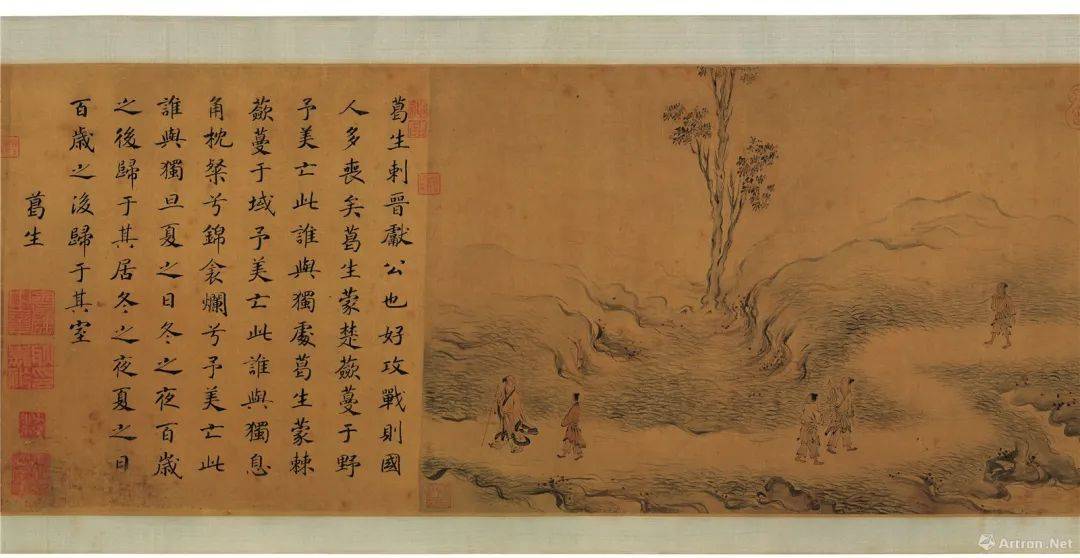 葛生刺晉獻公也好攻戰則國
人多喪矣葛生蒙楚蘞蔓于野
予美亡此誰與獨處葛生蒙棘
蘞蔓于域予美亡此誰與獨息
角枕粲兮錦衾爛兮予美亡此
誰與獨旦夏之日冬之夜百歲
之後歸于其居冬之夜夏之日
百歲之後歸于其室
葛生
Artron.Net